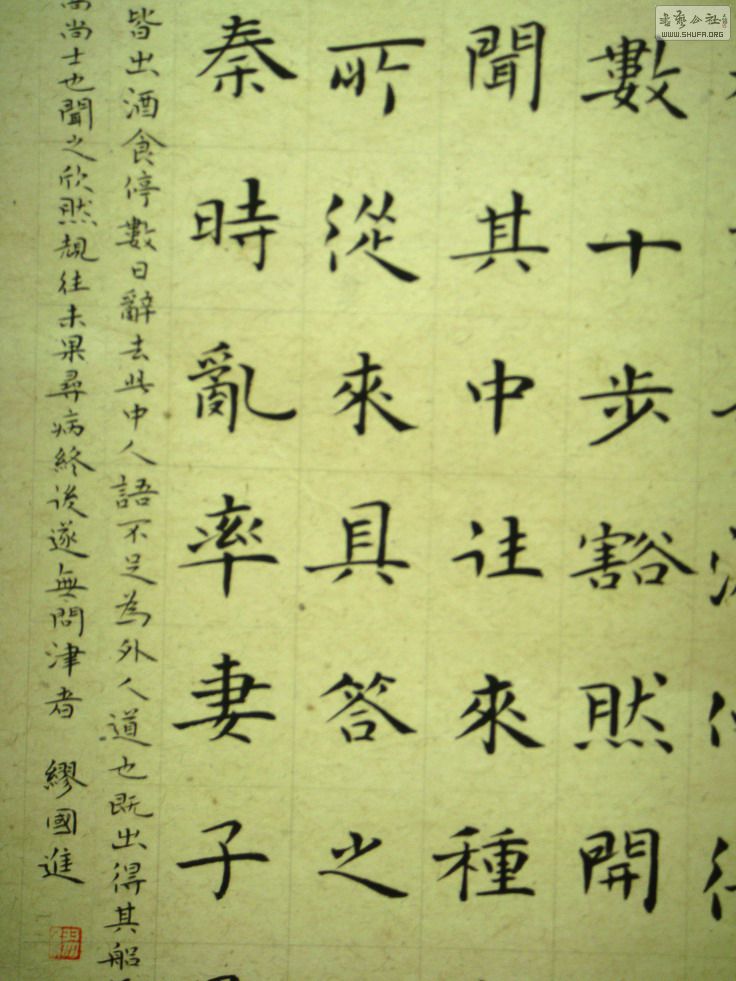 書藝公社
WWW.SHUFA.ORG
數十步豁然開
聞其中往來種
所從來具答之
秦時亂率妻子
皆出酒食停數日辭去此中人語不足為外人道也既出得其船
尚士也聞之欣然規往未果尋病終後遂無問津者 繆國進